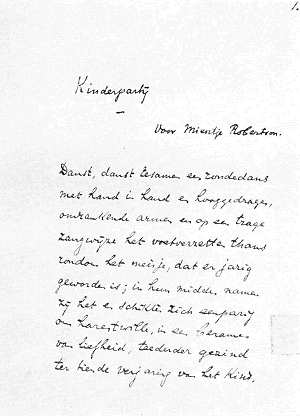 1.
Kinderpartij
Voor Mientje Robertson.
Danst, danst tesamen een rondedans
met hand in hand en hooggedragen,
omrankende armen en op een trage
zangwijze het voetverzetten thans
rondom het meisje, dat er jarig
geworden is; in hun midden namen
zij het en schikten zich
om harentwille, in een beramen
van liefheid, teederder gezind
ter tiende verjaring van het kind.